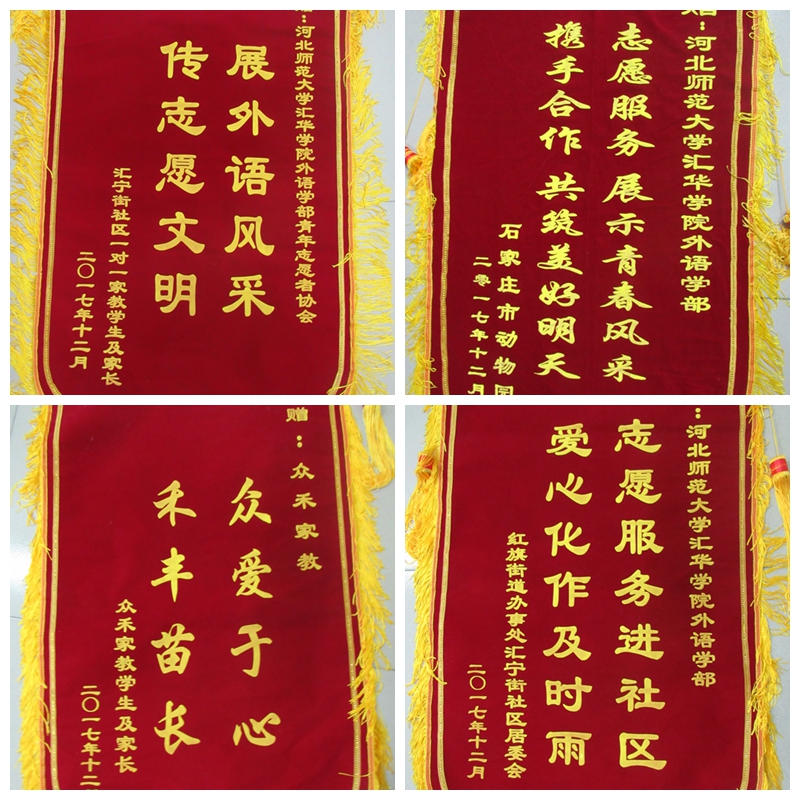 赠:河北师范大学汇华学院外语学部青年志愿者协会
展外语风采
传志愿文明
汇宁街社区一对一家教学生及家长
二〇一七年十二月
赠:河北师范大学汇华学院外语学部
志愿服务 展示青春风采
携手合作 共筑美好明天
石家庄市动物园
二零一七年十二月
赠:众禾家教
众爱于心
禾丰苗长
众禾家教学生及家长
二〇一七年十二
:河北师范大学汇华学院外语学部
志愿服务进社区
爱心化作及时雨
红旗街道办事处汇宁街社区居委会
二〇一七年十二月